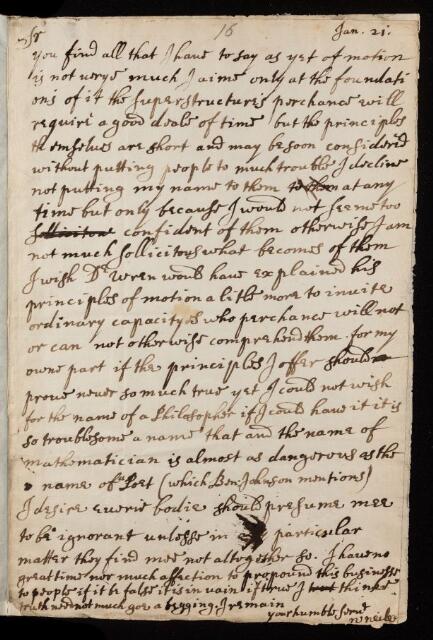 Sr 16 Jan. 21.
you find all that J have to say as yet of motion
is not verye much J aime only at the foundati
ons of it the superstructures perchance will
require a good deale of time but the principles
themselves are short and may be soon considered
without putting people to much trouble J decline
not putting my name to them to them at any
time but only because J would not seeme too
confident of them otherwise J am
not much sollicitous what becomes of them
J wish Dr Wren would have explained his
principles of motion a litle more to invite
ordinary capacityes who perchance will not
or can not otherwise comprehend them. for my
owne part if the principles J offer should
prove never so much true yet J could not wish
for the name of a Philosopher if J could have it it is
so troublesome a name that and the name of
mathematician is almost as dangerous as the
name of a Poet (which Ben: Johnson mentions)
J desire everie bodie should presume mee
to be ignorant unlesse in particular
matter they find mee not altogether so. J have no
great time nor much affection to propound this businesse
to people if it be false it is in vain if true J thinke
truth need not much goe a begging. J remain
your humble servt
W Neile